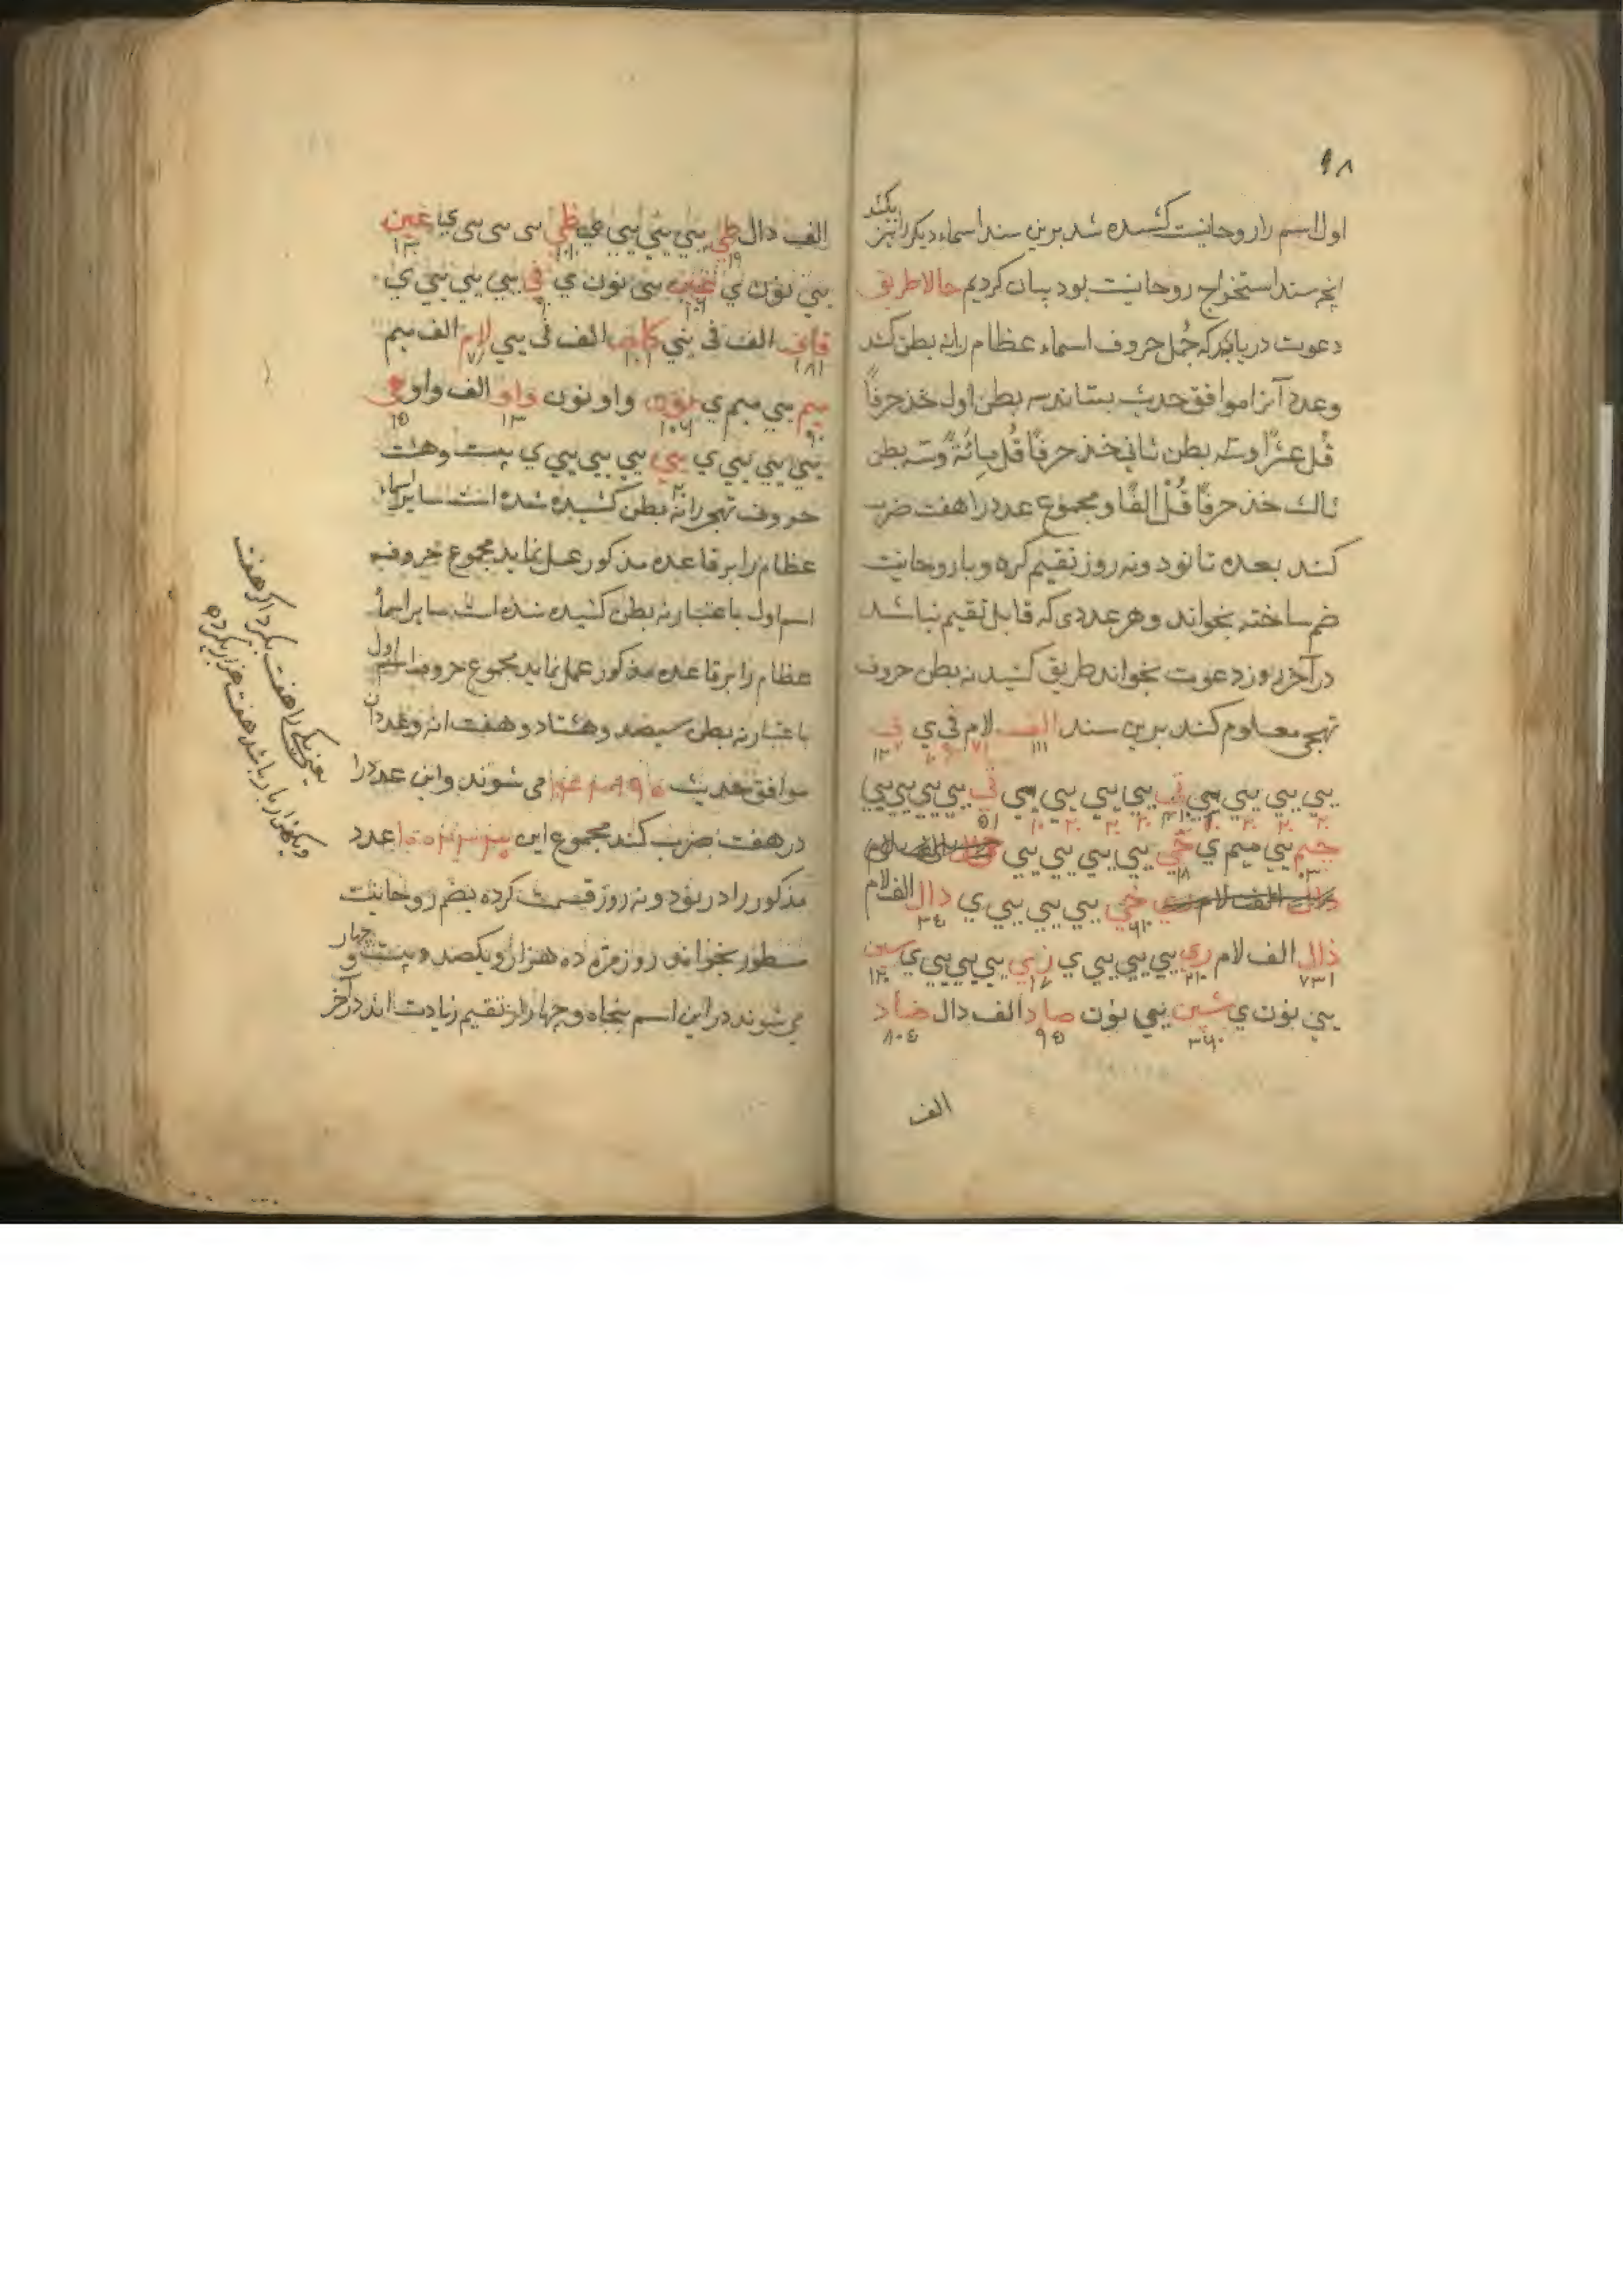 ۹۸
اول اسم را روحانیت کشیده شد برین سند اسماء دیگر را نیز بکند
آنچه سند استخراج روحانیت بود بیان کردیم حالا طریق
دعوت دریابد که جمل حروف اسماء عظام را نه بطن کند
وعدد آنرا موافق حدیث بستاند سه بطن اول خذ حرفاً
قل عشراً وسه بطن ثانی خذ حرفاً قل مائةً وسه بطن
ثالث خذ حرفاً قُلْ الفاً ومجموع عدد را هفت ضرب
کند بعده تا نود ونه روز تقیم کرده وبا روحانیت
ضم ساخته بخواند وهر عددی که قابل تقیم نباشد
در آخر روز دعوت بخواند طریق کشیدن نه بطن حروف
تهجی معلوم کند برین سند الف لام فی ی
۱۱۱ ۷۱
یی یی یی یی یی یی یی یی
جیم یی میم ی یی یی یی یی
خی یی یی یی یی ی دال الف لام
ذال الف لام ری یی یی یی یی ی زی یی یی یی یی ی سین
۷۳۱
یی نون ی شین یی نون صاد الف دال ضاد
۳۶۰ ۹۵ ۸۰۵
الف
الف دال طی یی یی یی یی ی ظی یی یی یی یی ی عین
۱۹ ۱۳۰
یی نون ی غین یی نون ی فی یی یی یی یی ی
قاف الف فی یی کاف الف فی یی لام الف میم
۱۸۱ ۱۰۱ ۷۱
میم یی میم ی نون واو نون واو الف واو
۹۰ ۱۰۶ ۱۳
یی یی یی ی یی یی یی یی ی بیست وهشت
حروف تهجی را نه بطن کشیده شده است سایر اسماء
عظام را بر قاعده مذکور عمل نماید مجموع حروف
اسم اول باعتبار نه بطن کشیده شده است سایر اسماء
عظام را بر قاعده مذکور عمل نماید مجموع حروف اسم اول
باعتبار نه بطن سیصد وهشتاد وهفت اند وعدد آن
موافق حدیث می شوند واین عدد را
در هفت ضرب کند مجموع این عدد
مذکور را در نود ونه روز قسمت کرده بضم روحانیت
مسطور بخواند روز مره ده هزار ویکصد وبیست وچهار
می شوند در این اسم پنجاه وچهار از تقیم زیادت اند در آخر
یعنی یکی را هفت بگیرد اگر هفت
ویکهزار بار باشد هفت هزار بگیرد